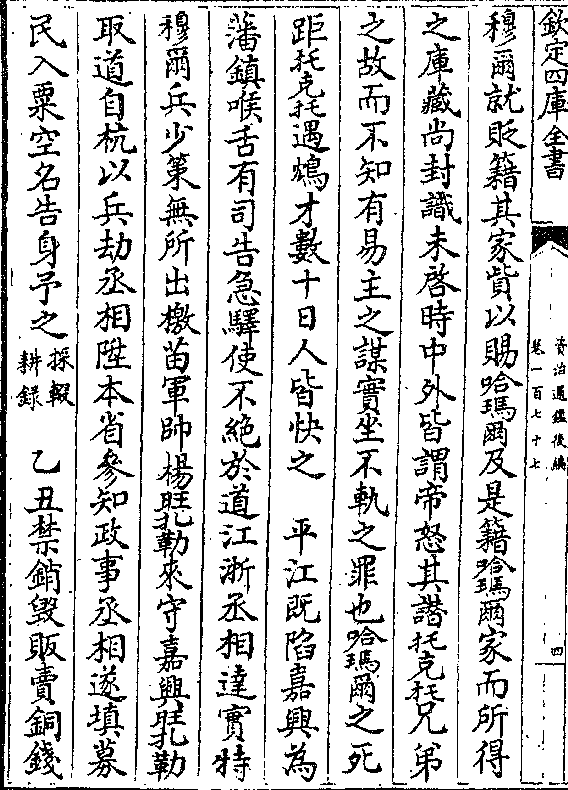 欽定四庫全書
資治通鑑後編
卷一百七十七
四
穆爾就貶籍其家貲以賜哈瑪爾及是籍哈瑪爾家而所得
之庫藏尚封識未啓時中外皆謂帝怒其譖托克托兄弟
之故而不知有易主之謀實坐不軌之罪也哈瑪爾之死
距托克托遇鴆才數十日人皆快之　平江既陷嘉興為
藩鎮喉舌有司告急驛使不絕於道江浙丞相達實特
穆爾兵少策無所出檄苗軍帥楊旺扎勒來守嘉興旺扎勒
取道自杭以兵劫丞相陞本省參知政事丞相遂填募
民入粟空名告身予之
採輟
耕録
乙丑禁銷毀販賣銅錢